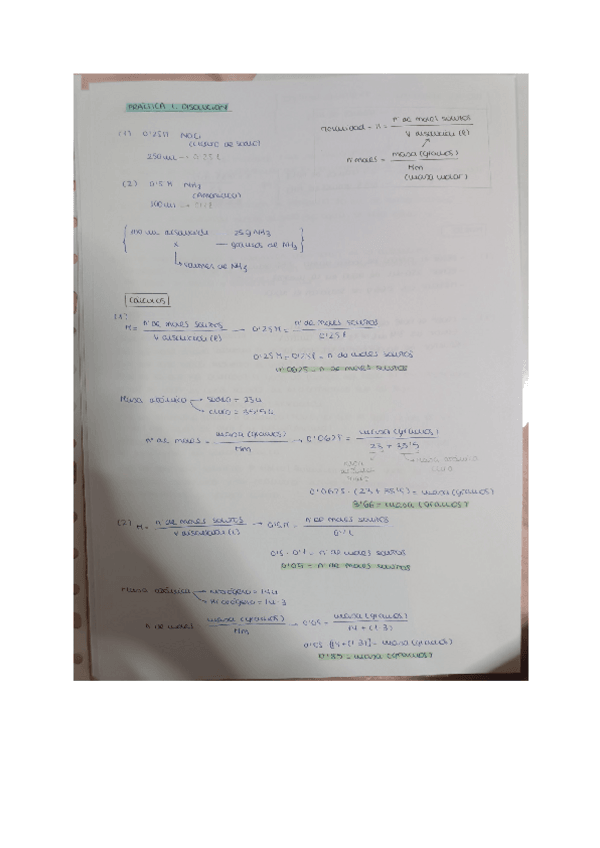 PRÁCTICA 1. DISOLUCIÓN
(1) 0'25M NaCl
(cloruro de sodio)
250 ml → 0'25 l
(2) 0'5 M NH3
(Amoniaco)
100 ml
Molaridad = M = nº de moles soluto / V disolución (l)
n moles = masa (gramos) / Mm
(masa molar)
100 ml disolvente 25g NH3
x — gramos de NH3
↳ volumen de NH3
CÁLCULOS
(1)
M = nº de moles soluto / V disolución (l) → 0'25M = nº de moles soluto / 0'25 l
0'25M · 0'25l = n de moles soluto
0'0625 = nº de moles soluto
Masa atómica → sodio = 23u
→ cloro = 35'5u
nº de moles = masa (gramos) / Mm → 0'0625 = masa (gramos) / 23 + 35'5
masa atómica
cloro
0'0625 · (23 + 35'5) = masa (gramos)
3'66 = masa (gramos)
(2) M = nº de moles soluto / V disolución (l) → 0'5M = nº de moles soluto / 0'1 l
0'5 · 0'1 = nº de moles soluto
0'05 = nº de moles soluto
Masa atómica → nitrógeno = 14u
→ hidrógeno = 1u · 3
n de moles = masa (gramos) / Mm → 0'05 = masa (gramos) / 14 + (1·3)
0'05 · [14 + (1·3)] = masa (gramos)
0'85 = masa (gramos)